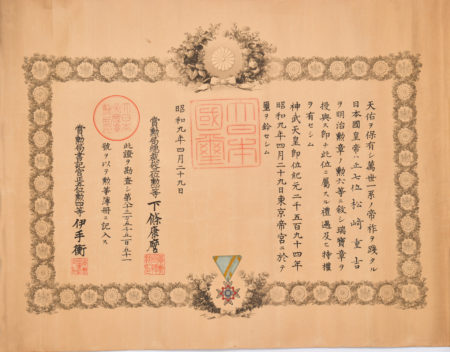 天佑ヲ保有シ萬世一系ノ帝祚ヲ踐タル
日本國皇帝ハ正七位松崎重吉
ヲ明治勲章ノ勲六等ニ敍シ瑞寶章ヲ
授與ス即チ此位ニ屬スル禮遇及ヒ特權
ヲ有セシム
神武天皇即位紀元二千五百九十四年
昭和九年四月二十九日東京帝宮ニ於テ
璽ヲ鈐セシム
大日本
國璽
昭和九年四月二十九日
賞勲局總裁從三位勲二等下條康麿
此證ヲ勘査シ第
號ヲ以テ勲等簿冊ニ記入ス
賞勲局書記官正五位勲四等伊手衡